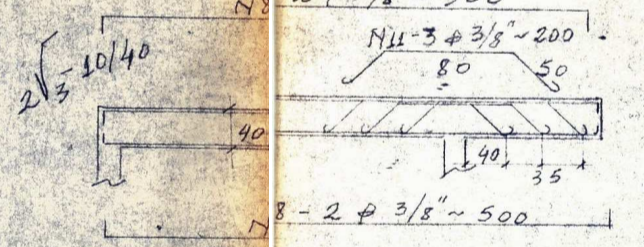 N8
2√3 10/40
40
N11-3 ϕ 3/8" ~ 200
80 50
40
35
8 - 2 ϕ 3/8" ~ 500